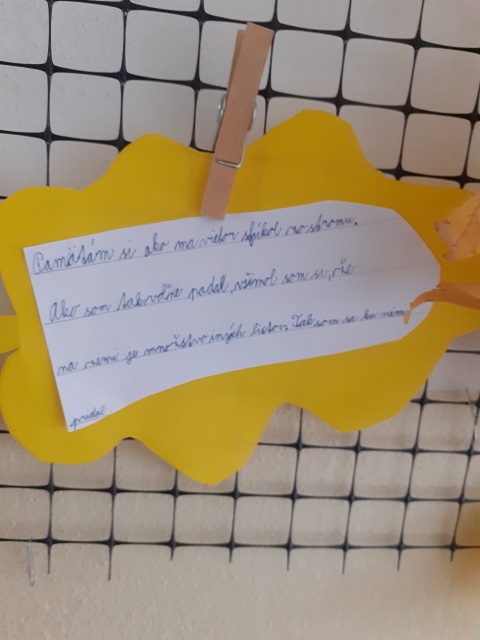 Pamätám si ako ma vietor sfúkol zo stromu.
Ako som tak voľne padal, všimol som si, že
na zemi je množstvo iných listov. Tak som sa ku nim
pridal.